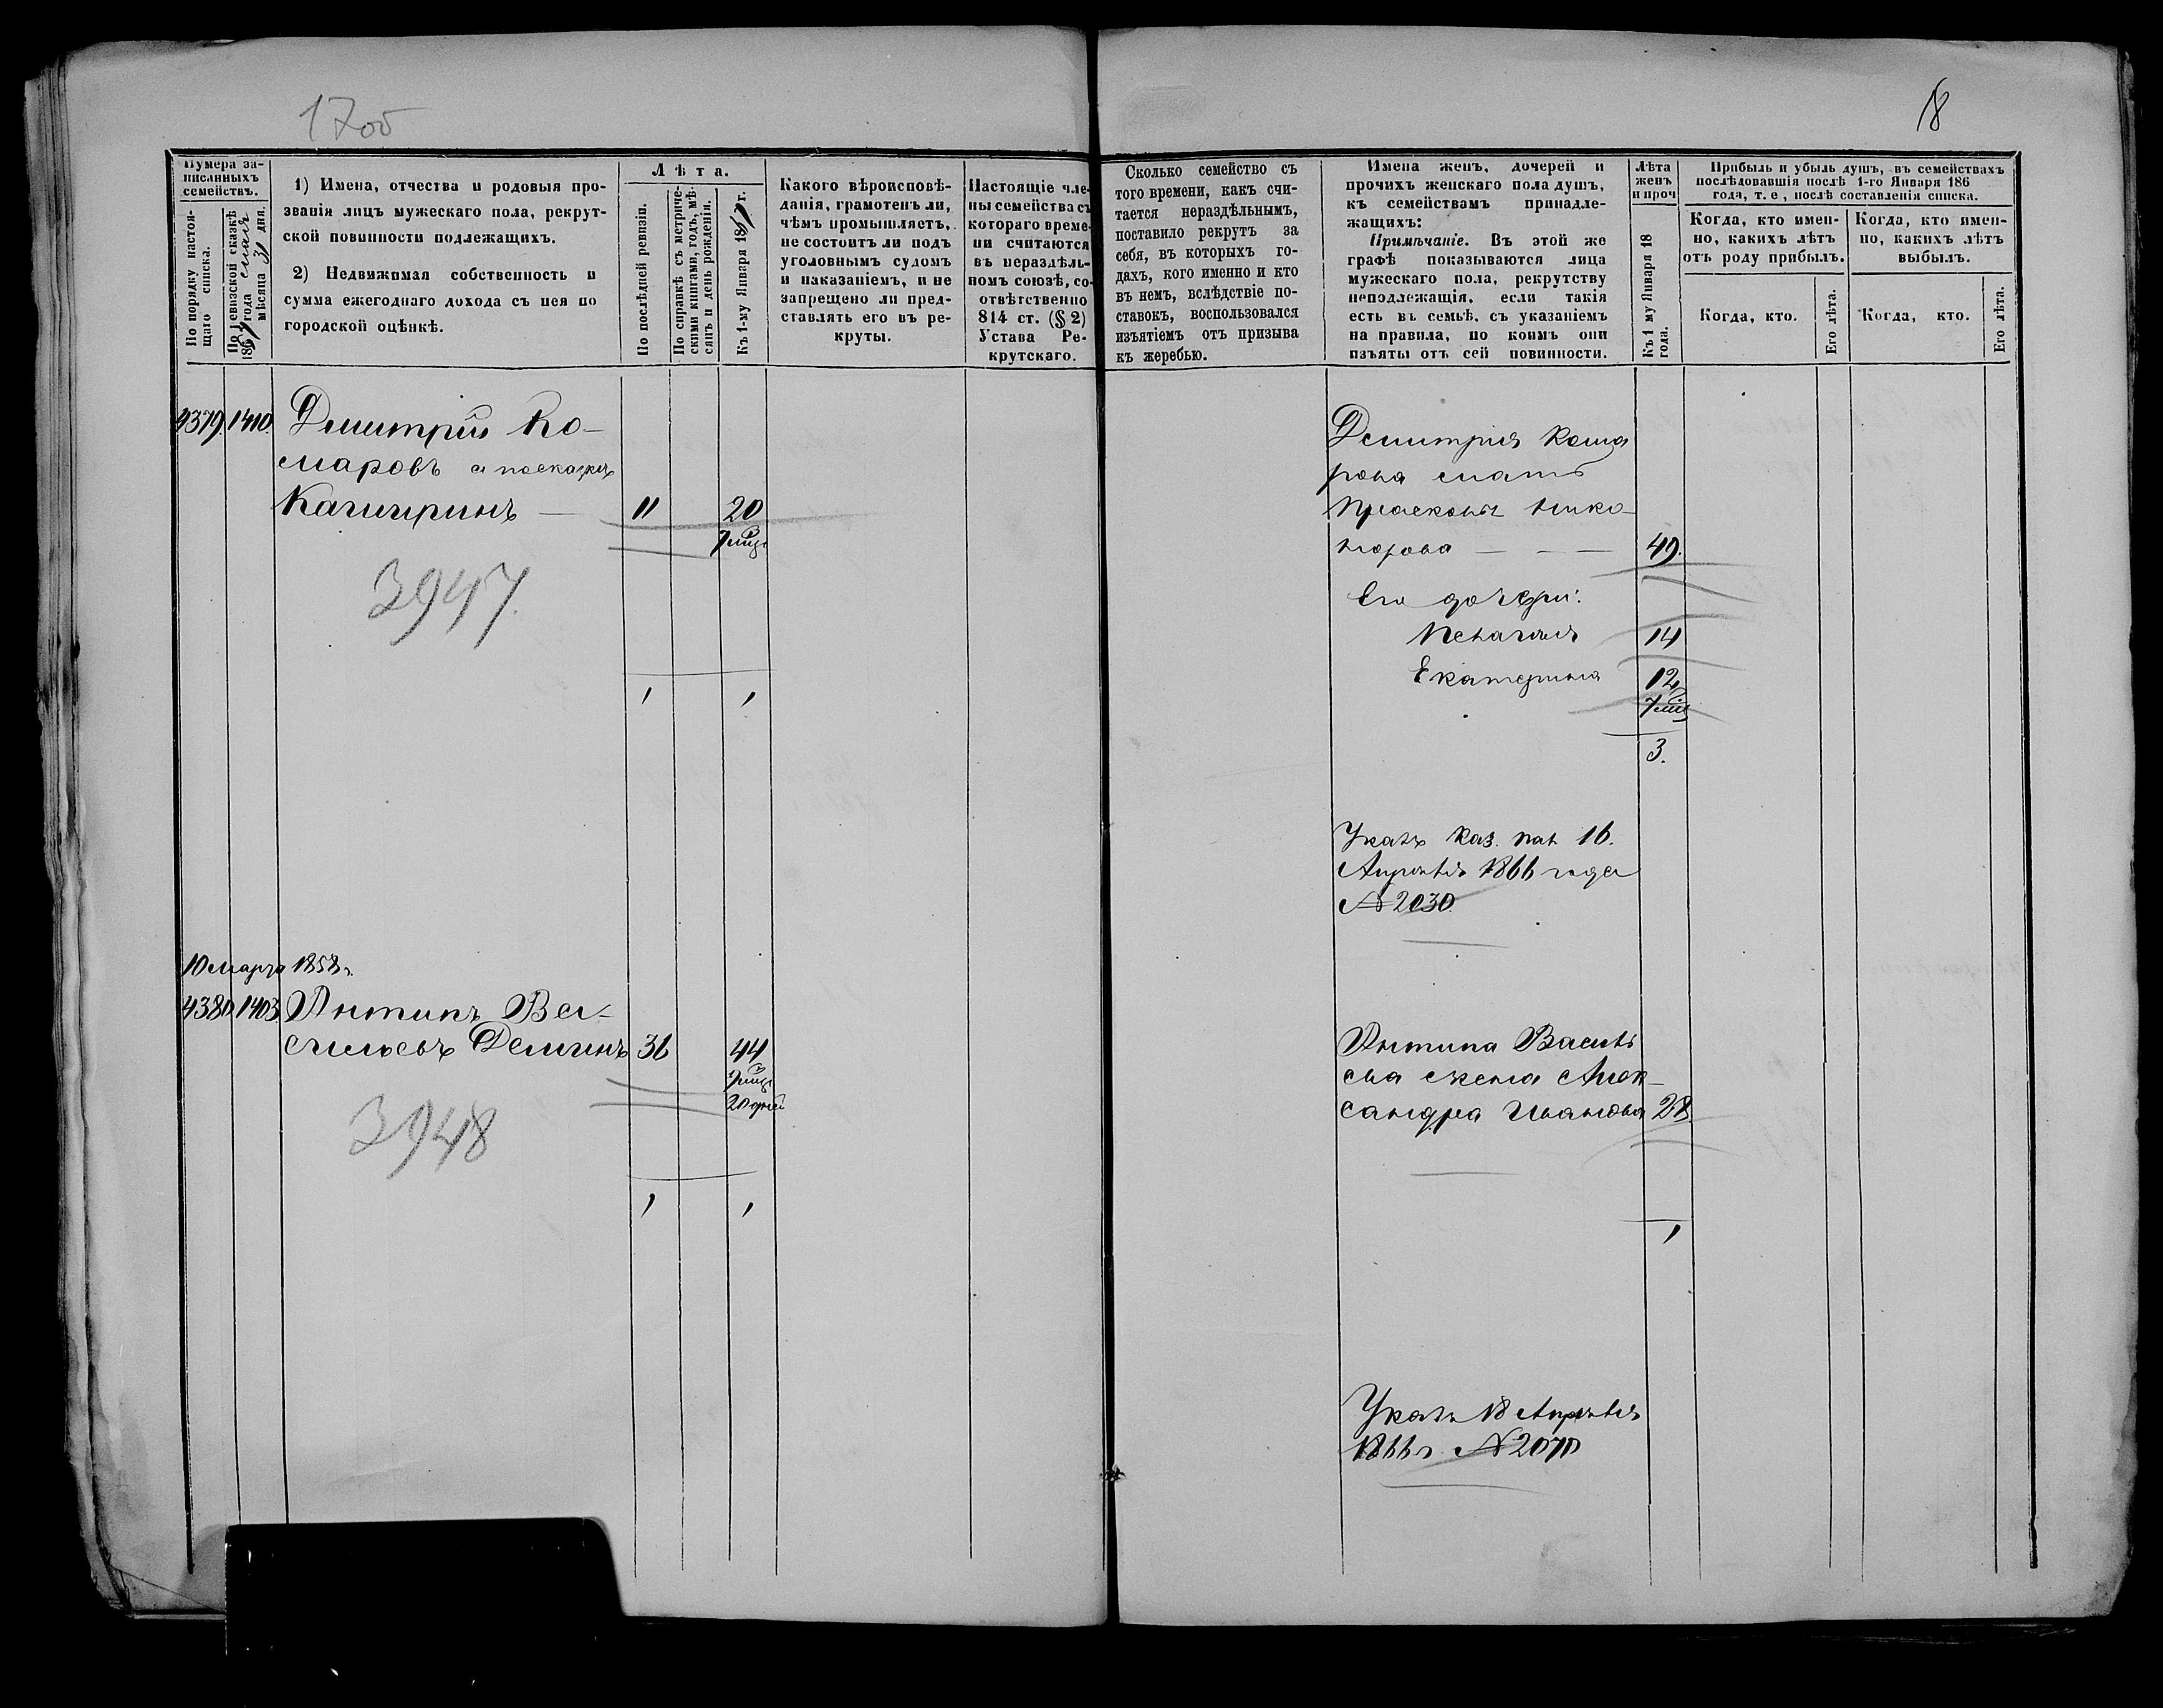 1700
18
Нумера за-
писанныхъ
семействъ.
По порядку настоя-
щаго списка.
По ревизской сказкѣ
186 года
мѣсяца 31 дня.
1) Имена, отчества и родовыя про-
званія лицъ мужескаго пола, рекрут-
ской повинности подлежащихъ.
2) Недвижимая собственность и
сумма ежегоднаго дохода съ нея по
городской оцѣнкѣ.
Лѣта.
По послѣдней ревизіи.
По справкѣ съ метриче-
скими книгами, годъ, мѣ-
сяцъ и день рожденія.
Къ 1-му Января 1867 г.
Какого вѣроисповѣ-
данія, грамотенъ ли,
чѣмъ промышляетъ,
не состоитъ ли подъ
уголовнымъ судомъ
и наказаніемъ, и не
запрещено ли пред-
ставлять его въ ре-
круты.
Настоящіе чле-
ны семейства съ
котораго време-
ни считаются
въ нераздѣль-
номъ союзѣ, со-
отвѣтственно
814 ст. (§ 2)
Устава Ре-
крутскаго.
Сколько семейство съ
того времени, какъ счи-
тается нераздѣльнымъ,
поставило рекрутъ за
себя, въ которыхъ го-
дахъ, кого именно и кто
въ немъ, вслѣдствіе по-
ставокъ, воспользовался
изъятіемъ отъ призыва
къ жеребью.
Имена женъ, дочерей и
прочихъ женскаго пола душъ,
къ семействамъ принадле-
жащихъ:
Примѣчаніе. Въ этой же
графѣ показываются лица
мужескаго пола, рекрутству
неподлежащія, если такія
есть въ семьѣ, съ указаніемъ
на правила, по коимъ они
изъяты отъ сей повинности.
Лѣта
женъ
и проч
Къ 1 му Января 18
года.
Прибыль и убыль душъ, въ семействахъ
послѣдовавшія послѣ 1-го Января 186
года, т. е, послѣ составленія списка.
Когда, кто имен-
но, какихъ лѣтъ
отъ роду прибылъ.
Когда, кто имен-
но, какихъ лѣтъ
выбылъ.
Когда, кто.
Его лѣта.
Когда, кто.
Его лѣта.
4379. 1410. Дмитрій Ко-
маровъ а по сказкѣ
— 11 20
7 мѣс.
3947.
1 1
Дмитрія Кома
рова мать
Прасковья Никa-
норова — — — 49.
Его дочери:
Пелагея 14
Екатерина 12
7 мѣс
3.
Указъ Каз. Пал. 16.
Апрѣля 1866 года
№ 2030.
10 марта 1858 г.
4380. 1403. Антипъ Ва-
сильевъ Деминъ 36 44
9 мѣс.
20 дней
3948
1 1
Антипа Василь
ева жена Алек-
сандра Иванова 28.
1
Указъ 18 Апрѣля
1866 г. № 2070